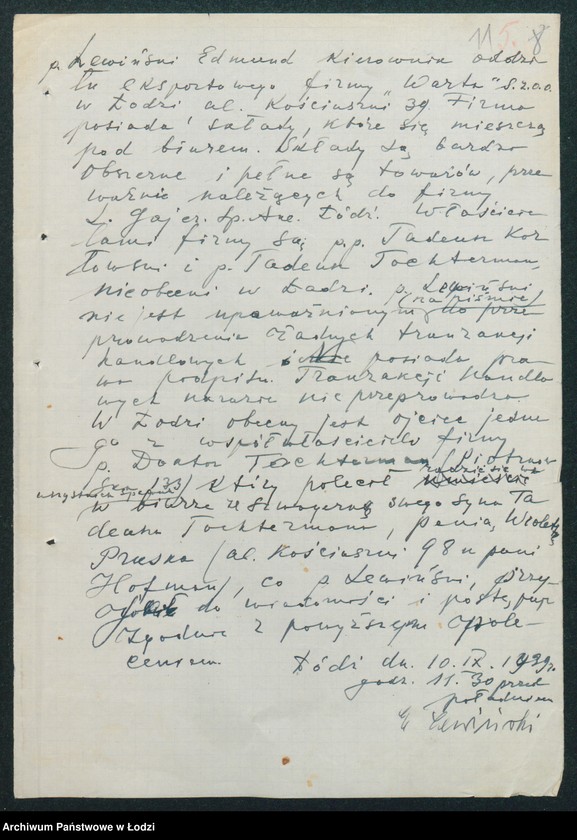 11 5. 8
p. Lewiński Edmund Kierownik oddzia
łu eksportowego firmy „Warta" S.z.o.o.
w Łodzi al. Kościuszki 39. Firma
posiada składy, które się mieszczą
pod biurem. Składy są bardzo
obszerne i pełne są towarów, prze
ważnie należących do firmy
L. Gajer. Sp. Akc. Łódź. Właścicie
lami firmy są p.p. Tadeusz Koz
łowski i p. Tadeusz Tochterman,
nieobecni w Łodzi. p. Lewiński
nie jest upoważnionym (na piśmie) do prze
prowadzenia żadnych tranzakcji
handlowych i nie posiada pra
wa podpisu. Tranzakcji handlo
wych narazie nie przeprowadza.
W Łodzi obecny jest ojciec jedne
go z współwłaścicieli firmy
p. Doktor Tochterman (Piotrkow
ska 133) który polecił radzić się we
wszystkich sprawach
w biurze z swego syna Ta
deusza Tochtermana, panią Wioletą
Pruska (al. Kościuszki 98 u pani
Hofman), co p. Lewiński, przy
do wiadomości i postępuje
zgodnie z powyższym pole
ceniem.
Łódź dn. 10. IX. 1939 r.
godz. 11.30 przed
południem
E Lewiński
Archiwum Państwowe w Łodzi